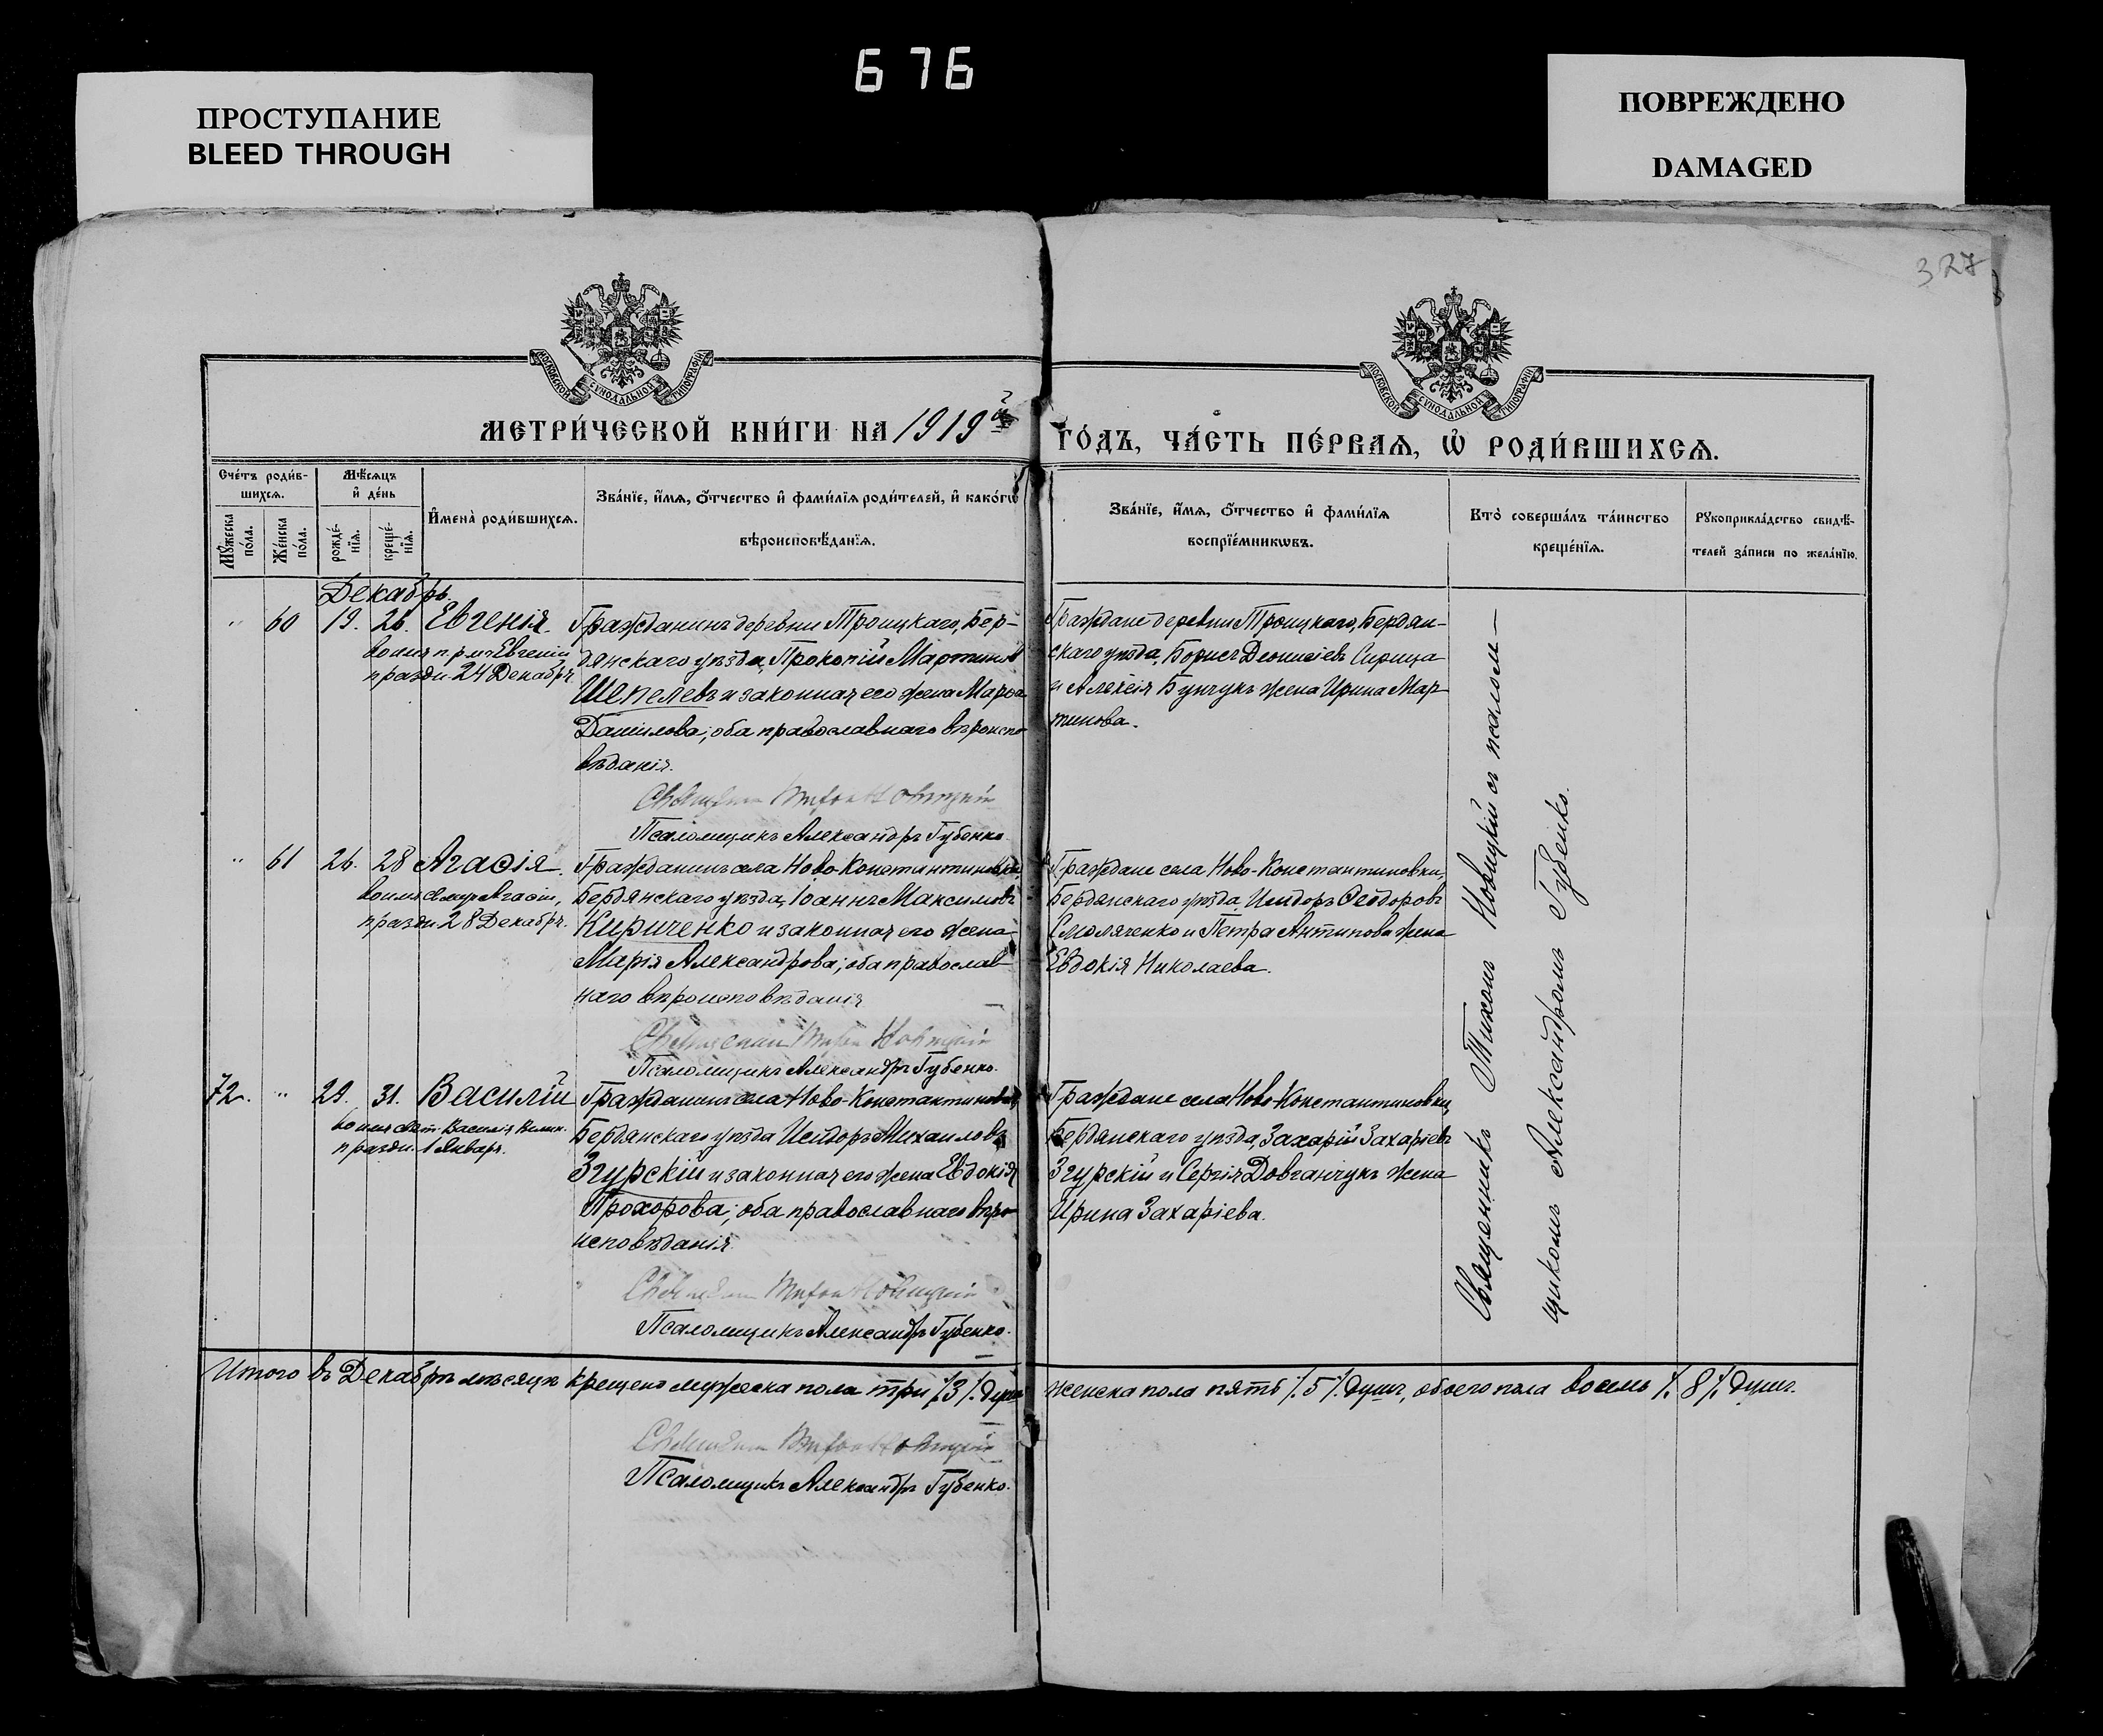 676
ПРОСТУПАНИЕ
BLEED THROUGH
ПОВРЕЖДЕНО
DAMAGED
327
МОСКОВСКОЙ СѴНОДАЛЬНОЙ ТИПОГРАФІИ
МОСКОВСКОЙ СѴНОДАЛЬНОЙ ТИПОГРАФІИ
МЕТРИ́ЧЕСКОЙ КНИ́ГИ НА 1919й
ГО́ДЪ, ЧА́СТЬ ПЕ́РВАѦ, Ѡ҆ РОДИ́ВШИХСѦ.
Сче́тъ роди́в-
шихсѧ.
Мѣ́сѧцъ
и҆ де́нь
Мꙋ́жеска
по́ла.
Же́нска
по́ла.
рожде́-
нїѧ.
креще́-
нїѧ.
И҆мена̀ роди́вшихсѧ.
Зва́нїе, и҆́мѧ, ѻ҆́тчество и҆ фами́лїѧ роди́телей, и҆ како́гѡ
вѣроисповѣ́данїѧ.
Зва́нїе, и҆́мѧ, ѻ҆́тчество и҆ фами́лїѧ
воспрїе́мникѡвъ.
Кто̀ соверша́лъ та́инство
креще́нїѧ.
Рꙋкоприкла́дство свидѣ́-
телей за́писи по жела́нїю.
Декабрь.
" 60 19. 26. Евгенія.
во имя прмч Евгеніи
праздн. 24 Декабря
Гражданинъ деревни Троицкаго, Бер-
дянскаго уѣзда, Прокопій Мартинов
Шепелевъ и законная его жена Марѳа
Даніилова; оба православнаго вѣроиспо
вѣданія.
Священникъ Тихон Новицкій
Псаломщикъ Александръ Губенко.
Граждане деревни Троицкаго, Бердян-
скаго уѣзда, Борисъ Діонисіевъ Сирица
и Алексія Бунчукъ жена Ирина Мар-
тинова.
" 61 26. 28 Агаѳія.
праздн. 28 Декабря.
Гражданинъ села Ново-Константиновки,
Бердянскаго уѣзда, Іоаннъ Максимовъ
Кириченко и законная его жена
Марія Александрова; оба православ-
наго вѣроисповѣданія
Священникъ Тихон Новицкій
Псаломщикъ Александръ Губенко.
Граждане села Ново-Константиновки,
Бердянскаго уѣзда, Исидоръ Ѳеодоровъ
Смоляченко и Петра Антипова жена
Евдокія Николаева.
72. " 29. 31. Василій
во имя свят. Василія Велик.
праздн. 1 Января.
Гражданинъ села Ново-Константиновки
Бердянскаго уѣзда Исидоръ Михаиловъ
Згурскій и законная его жена Евдокія
Прохорова; оба православнаго вѣро-
исповѣданія.
Священникъ Тихон Новицкій
Псаломщикъ Александръ Губенко.
Граждане села Ново-Константиновки,
Бердянскаго уѣзда, Захарій Захаріевъ
Згурскій и Сергія Довганчукъ жена
Ирина Захаріева.
Священникъ Тихонъ Новицкій съ псалом—
щикомъ Александромъ Губенко.
Итого въ Декабрѣ мѣсяцѣ крещено мужеска пола три /.3/. душ
женска пола пять /.5/. душъ, обоего пола восемь /.8/. душъ.
Священникъ Тихон Новицкій
Псаломщикъ Александръ Губенко.